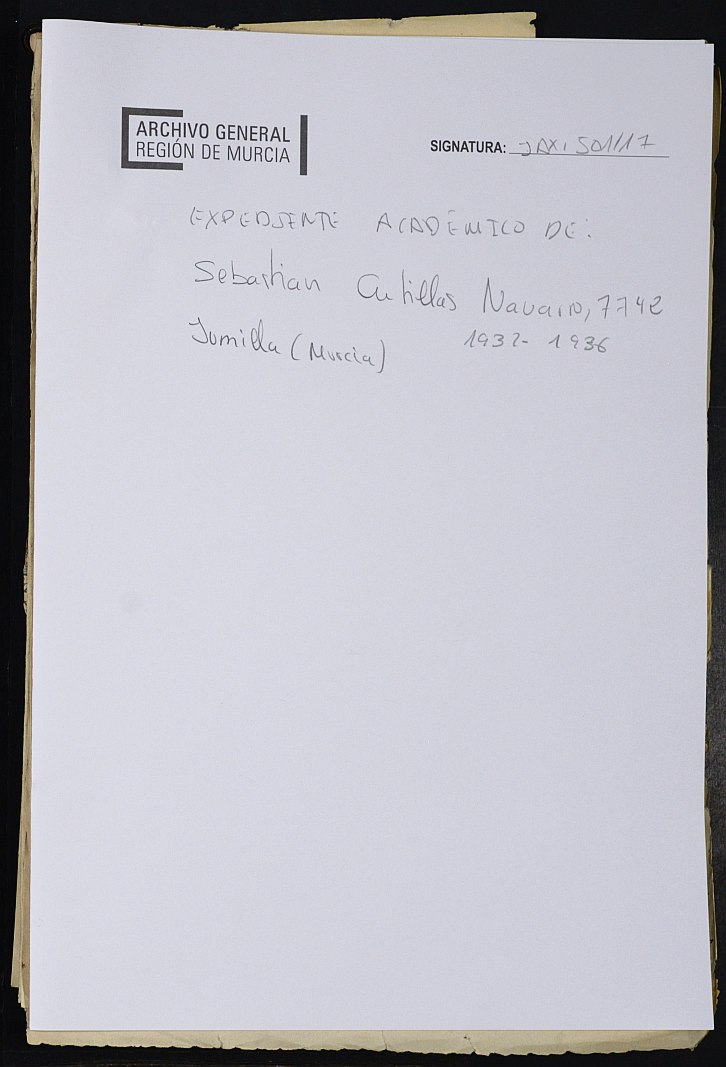 ARCHIVO GENERAL
REGIÓN DE MURCIA
SIGNATURA: JAX, 501/17
EXPEDIENTE ACADÉMICO DE:
Sebastian Cutillas Navarro, 7742
Jumilla (Murcia) 1932- 1936